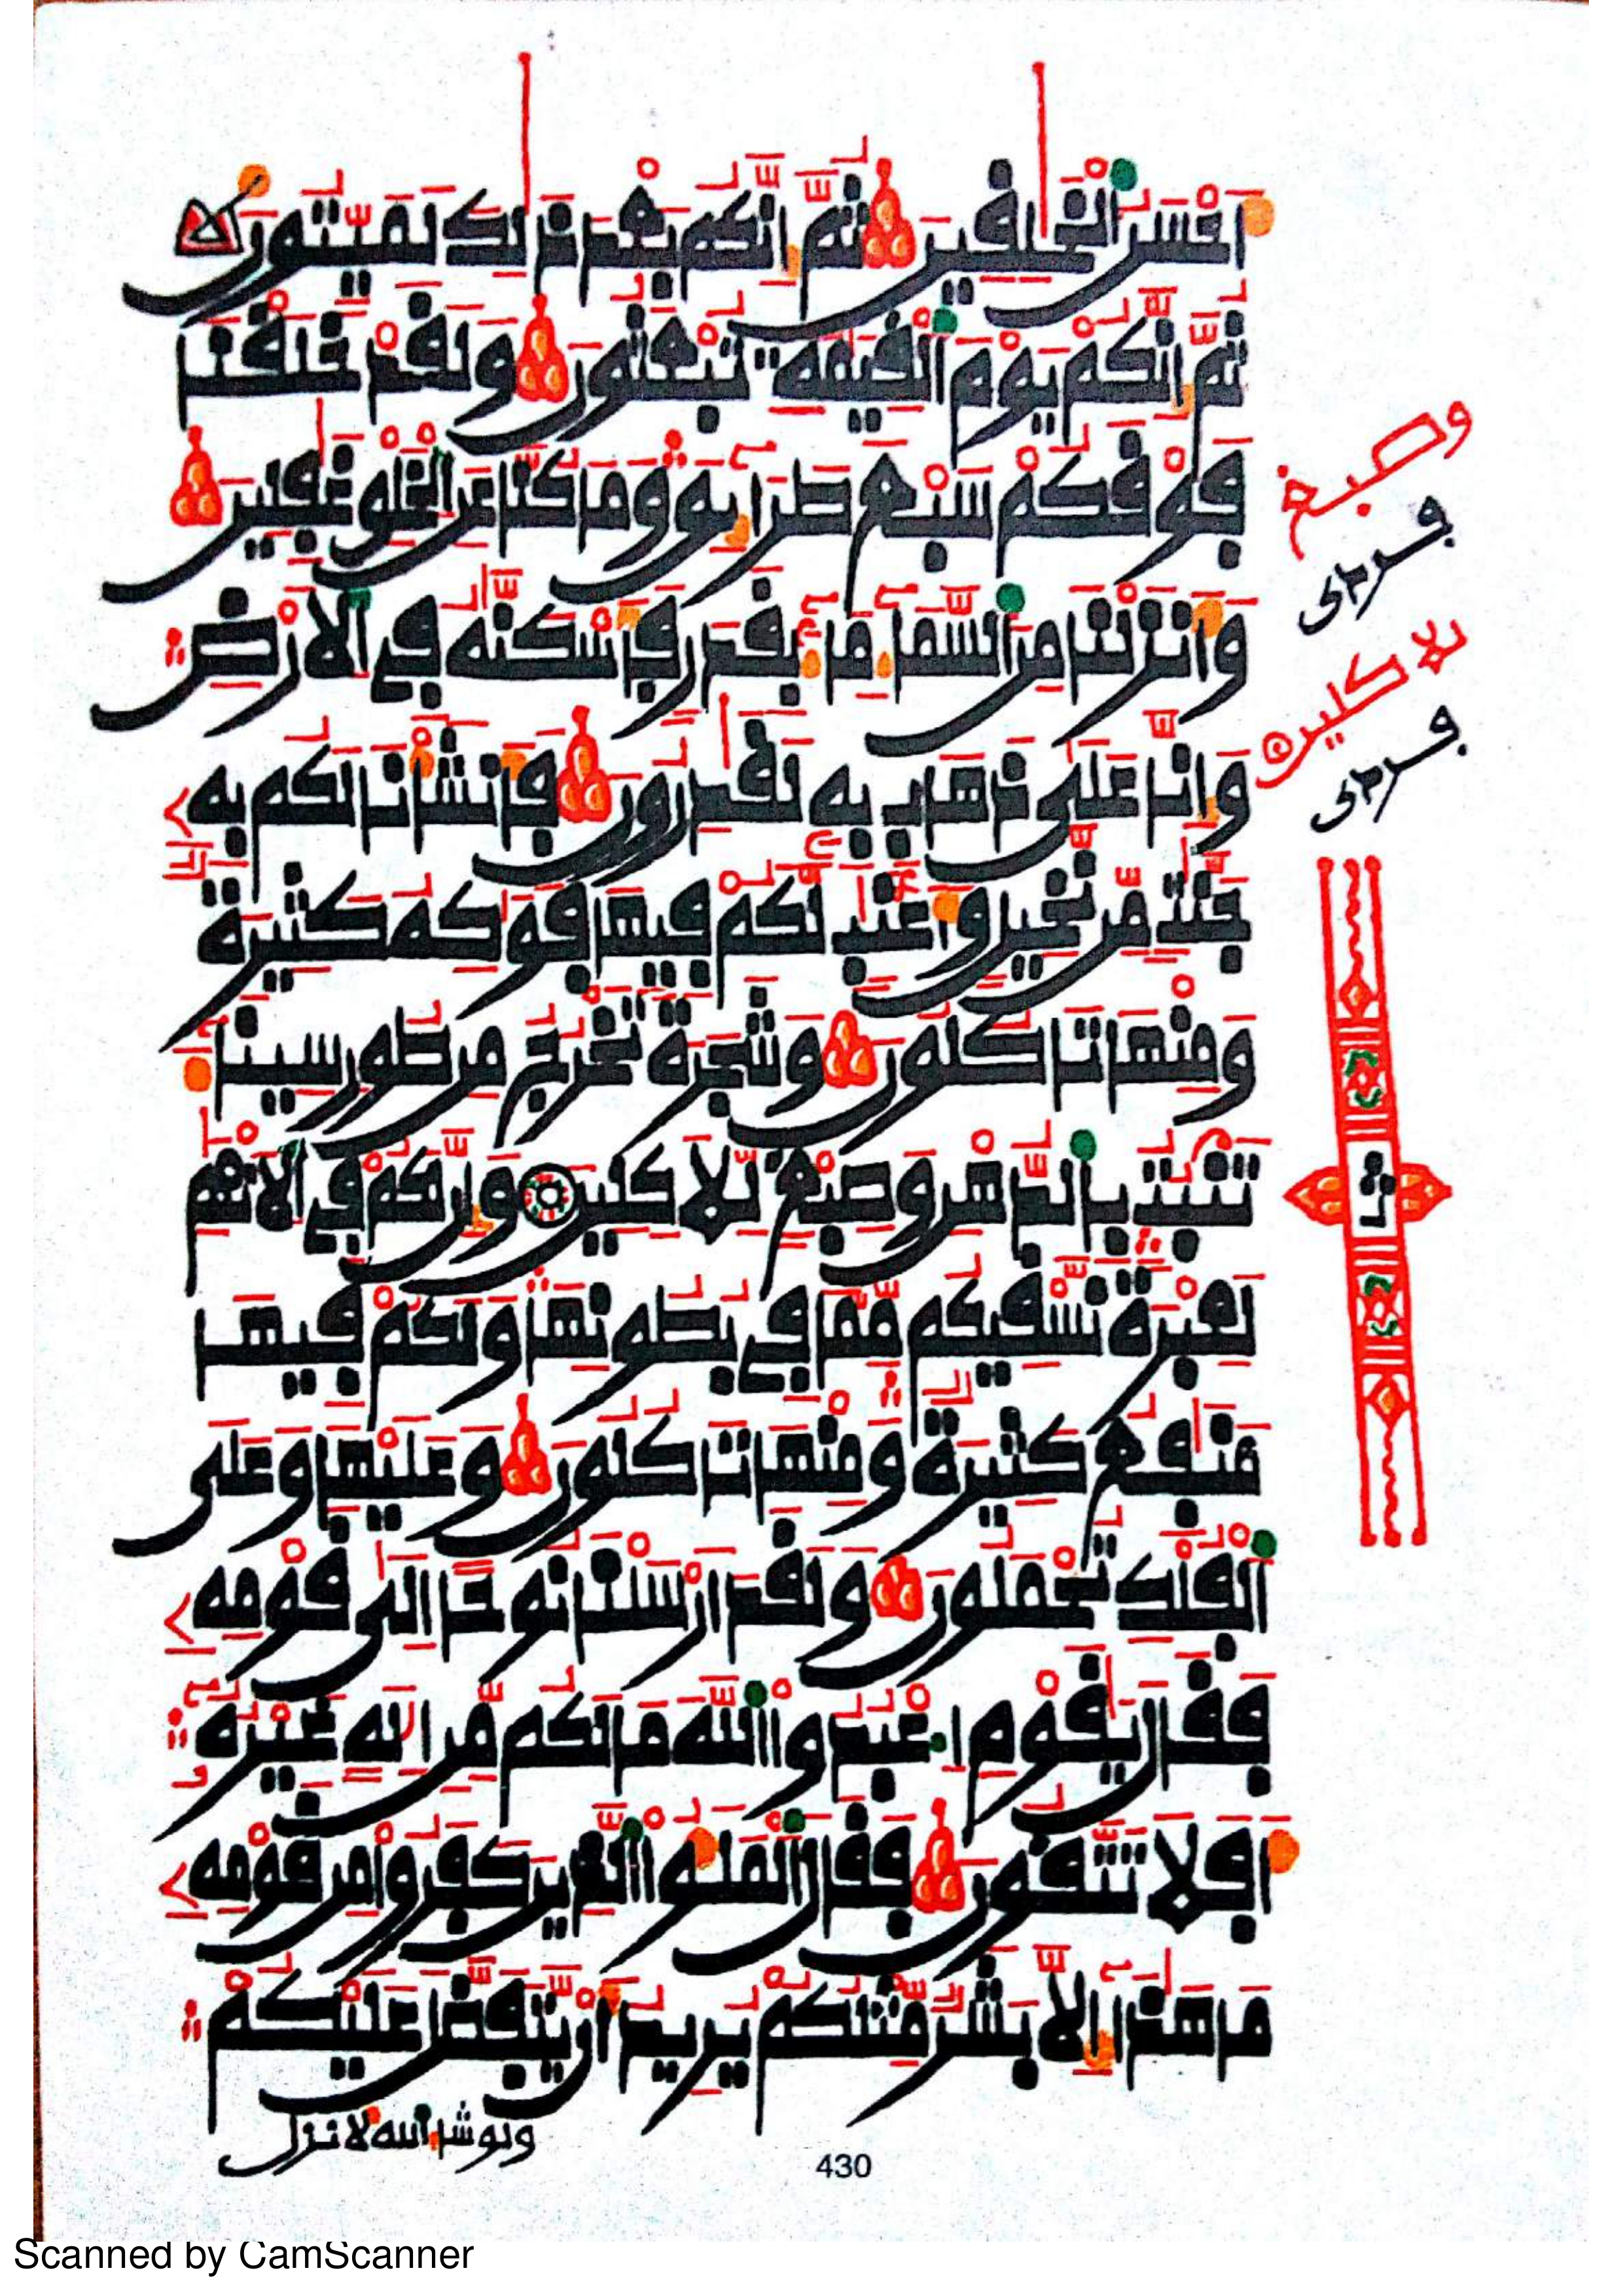 أَحْسَنُ الْخَٰلِقِينَ ثُمَّ إِنَّكُم بَعْدَ ذَٰلِكَ لَمَيِّتُونَ
ثُمَّ إِنَّكُمْ يَوْمَ الْقِيَٰمَةِ تُبْعَثُونَ وَلَقَدْ خَلَقْنَا
فَوْقَكُمْ سَبْعَ طَرَآئِقَ وَمَا كُنَّا عَنِ الْخَلْقِ غَٰفِلِينَ
وَأَنزَلْنَا مِنَ السَّمَآءِ مَآءً بِقَدَرٍ فَأَسْكَنَّٰهُ فِي الْأَرْضِ
وَإِنَّا عَلَىٰ ذَهَابٍ بِهِ لَقَٰدِرُونَ فَأَنشَأْنَا لَكُم بِهِ
جَنَّٰتٍ مِّن نَّخِيلٍ وَأَعْنَٰبٍ لَّكُمْ فِيهَا فَوَٰكِهُ كَثِيرَةٌ
وَمِنْهَا تَاكُلُونَ وَشَجَرَةً تَخْرُجُ مِن طُورِ سِينَآءَ
تَنۢبُتُ بِالدُّهْنِ وَصِبْغٍ لِّلْآكِلِينَ وَإِنَّ لَكُمْ فِي الْأَنْعَٰمِ
لَعِبْرَةً نَّسْقِيكُم مِّمَّا فِي بُطُونِهَا وَلَكُمْ فِيهَا
مَنَٰفِعُ كَثِيرَةٌ وَمِنْهَا تَاكُلُونَ وَعَلَيْهَا وَعَلَى
الْفُلْكِ تُحْمَلُونَ وَلَقَدْ أَرْسَلْنَا نُوحًا إِلَىٰ قَوْمِهِ
فَقَالَ يَٰقَوْمِ اعْبُدُوا اللَّهَ مَا لَكُم مِّنْ إِلَٰهٍ غَيْرُهُ
أَفَلَا تَتَّقُونَ فَقَالَ الْمَلَؤُا الَّذِينَ كَفَرُوا مِن قَوْمِهِ
مَا هَٰذَا إِلَّا بَشَرٌ مِّثْلُكُمْ يُرِيدُ أَن يَتَفَضَّلَ عَلَيْكُمْ
ولو شاء الله لأنزل
وصبغ
للآكلين
ثمن
430
Scanned by CamScanner